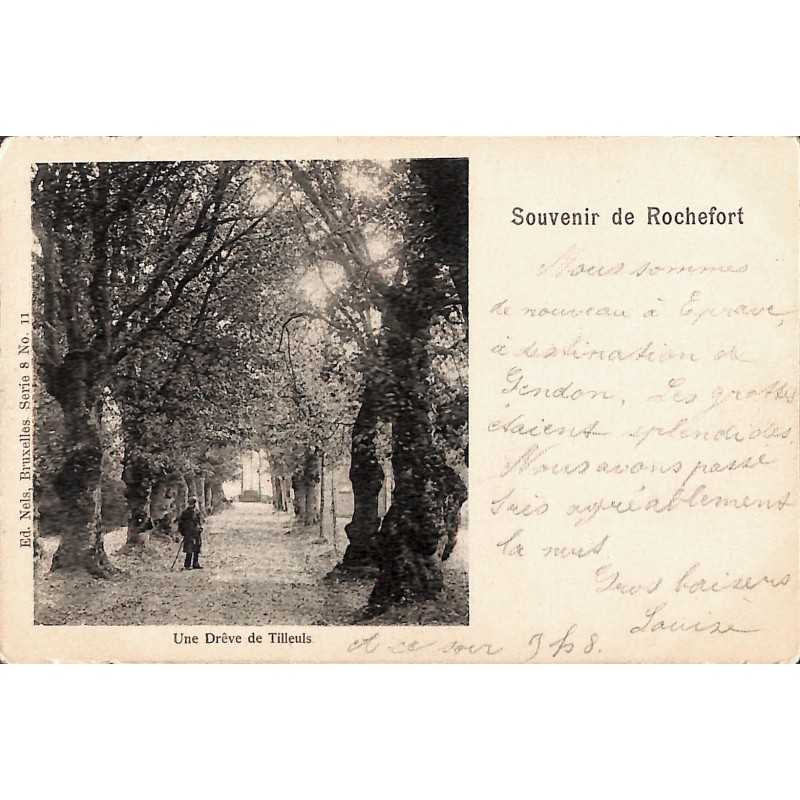 Souvenir de Rochefort
Nous sommes
de nouveau à Eprave,
à destination de
Gendon. Les grottes
étaient splendides.
Nous avons passé
très agréablement
la nuit
Gros baisers
Louise
A ce soir
Une Drêve de Tilleuls
Ed. Nels, Bruxelles Serie 8 No. 11